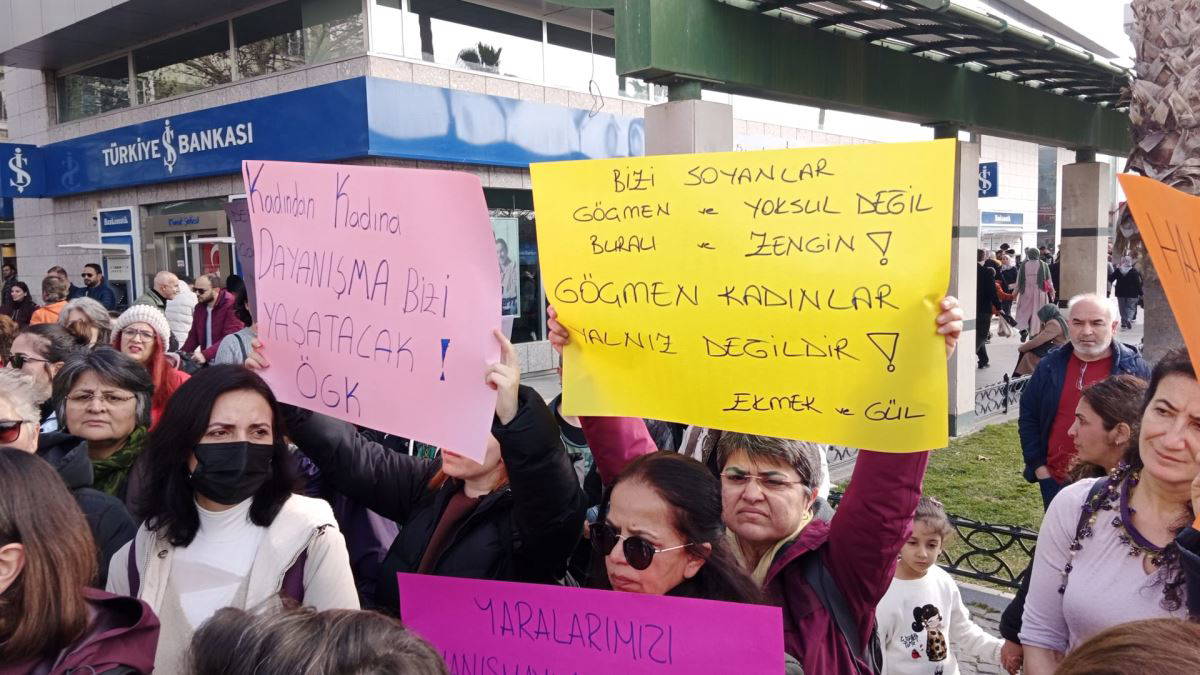 TÜRKİYE İŞ BANKASI
Bankamatik
Kadından Kadına
DAYANIŞMA BİZİ
YAŞATACAK !
ÖGK
BİZİ SOYANLAR
GÖÇMEN ve YOKSUL DEĞİL
BURALI ve ZENGİN !
GÖÇMEN KADINLAR
YALNIZ DEĞİLDİR !
EKMEK ve GÜL
YARALARIMIZI
HA